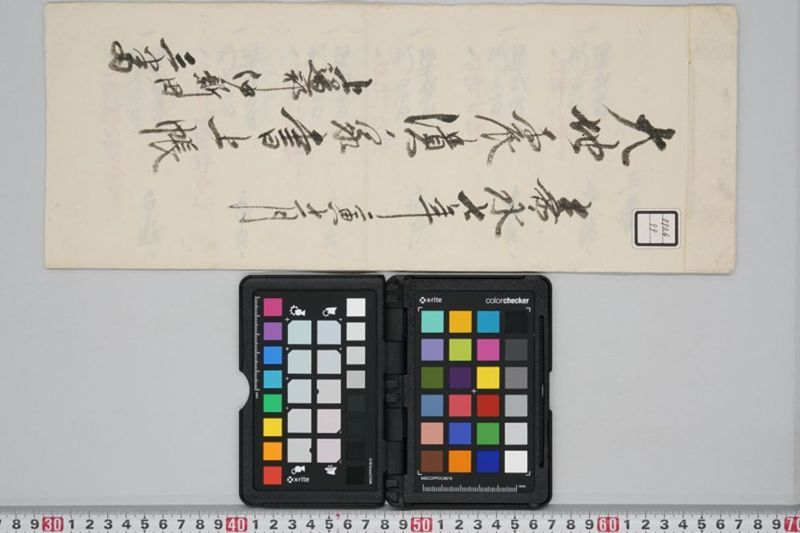 嘉永七年寅十一月
大地震潰家書上帳
上道郡沖新田
x-rite
colorchecker
MSCCPPCC0616
x-rite
7 8 9 30 1 2 3 4 5 6 7 8 9 40 1 2 3 4 5 6 7 8 9 50 1 2 3 4 5 6 7 8 9 60 1 2 3 4 5 6 7 8 9 70